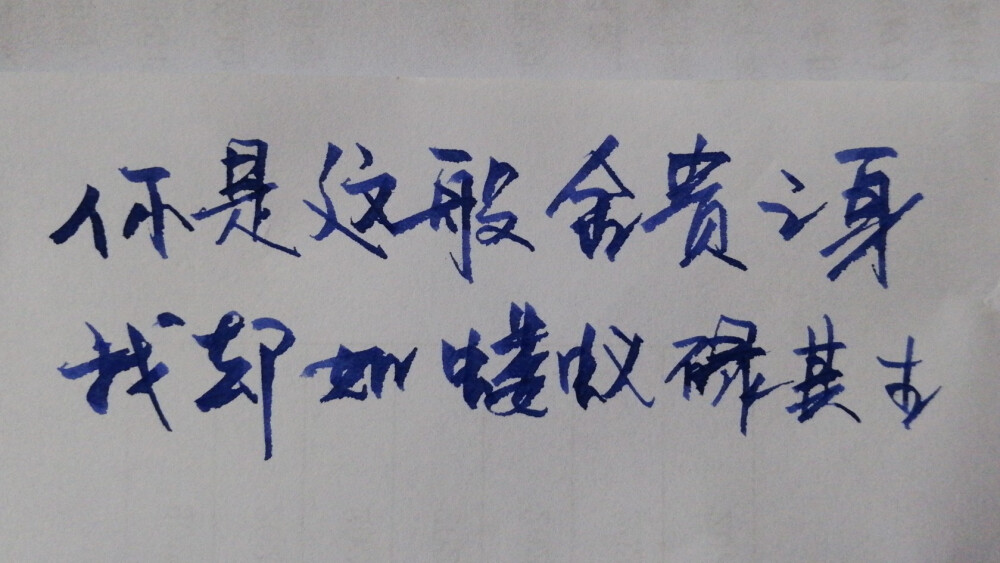 你是这般金贵之身
我却如蝼蚁碌其